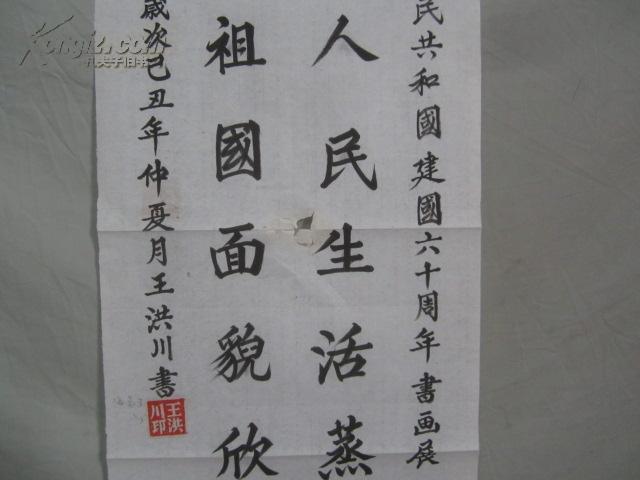 民共和國建國六十周年书画展
人民生活蒸
祖國面貌欣
歲次己丑年仲夏月王洪川書
王洪川印
Kongfz.com
孔夫子旧书